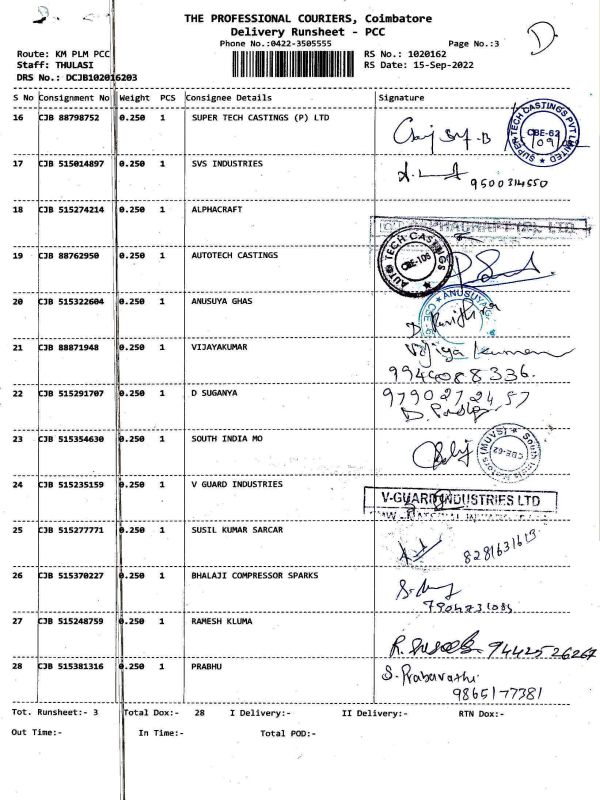 D.
THE PROFESSIONAL COURIERS, Coimbatore
Delivery Runsheet - PCC
Phone No.:0422-3505555
Page No.:3
Route: KM PLM PCC
RS No.: 1020162
Staff: THULASI
RS Date: 15-Sep-2022
DRS No.: DCJB102016203
S No Consignment No Weight PCS Consignee Details Signature
16 CJB 88798752 0.250 1 SUPER TECH CASTINGS (P) LTD
SUPER TECH CASTINGS PVT LIMITED CBE-62
17 CJB 515014897 0.250 1 SVS INDUSTRIES
9500314550
18 CJB 515274214 0.250 1 ALPHACRAFT
19 CJB 88762950 0.250 1 AUTOTECH CASTINGS
AUTO TECH CASTINGS CBE-106
20 CJB 515322604 0.250 1 ANUSUYA GHAS
ANUSUYA
21 CJB 88871948 0.250 1 VIJAYAKUMAR
Vijiya kumar
9944088336.
22 CJB 515291707 0.250 1 D SUGANYA
9790272457
23 CJB 515354630 0.250 1 SOUTH INDIA MO
CBE-62
24 CJB 515235159 0.250 1 V GUARD INDUSTRIES
V-GUARD INDUSTRIES LTD
25 CJB 515277771 0.250 1 SUSIL KUMAR SARCAR
8281631613
26 CJB 515370227 0.250 1 BHALAJI COMPRESSOR SPARKS
27 CJB 515248759 0.250 1 RAMESH KLUMA
9442526267
28 CJB 515381316 0.250 1 PRABHU
S. Prabavathi
9865177381
Tot. Runsheet:- 3 Total Dox:- 28 I Delivery:- II Delivery:- RTN Dox:-
Out Time:- In Time:- Total POD:-